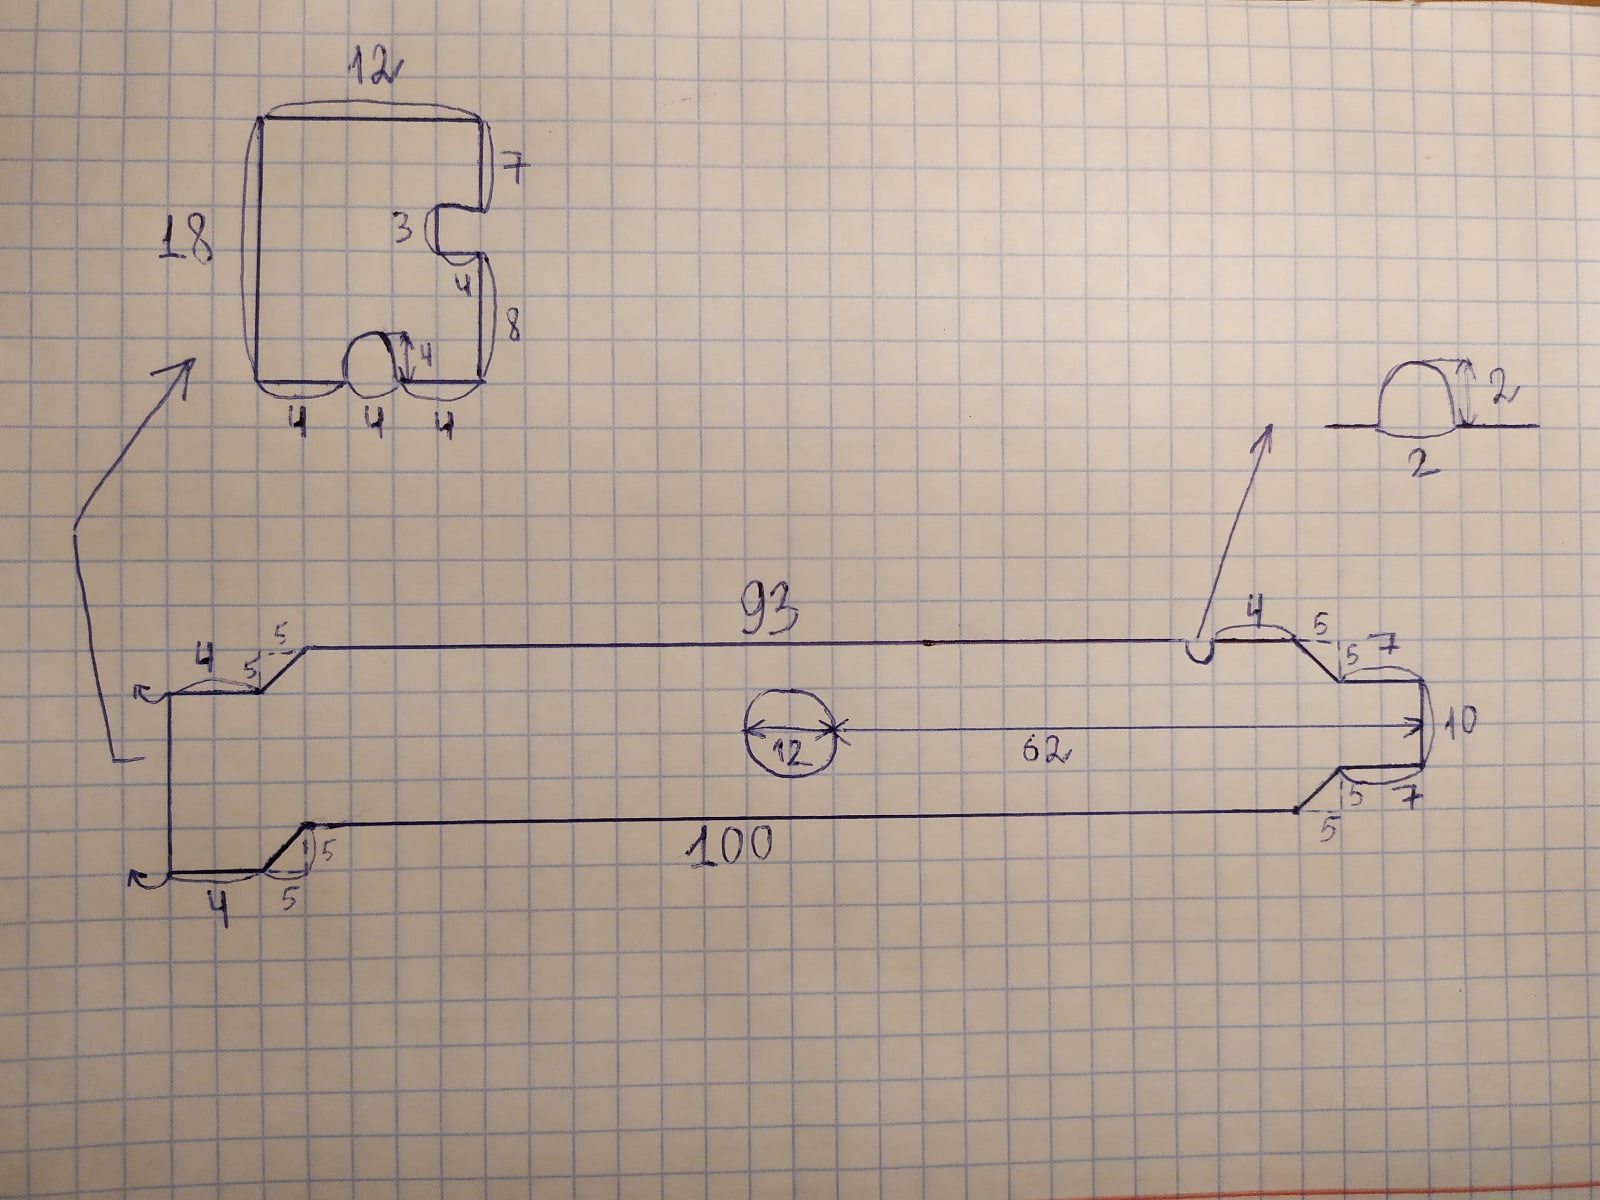 12
7
18
3
4
8
4
4 4 4
2
2
93
4 5
5 7
5
4 5
10
12 62
5 7
5
100
5
4 5